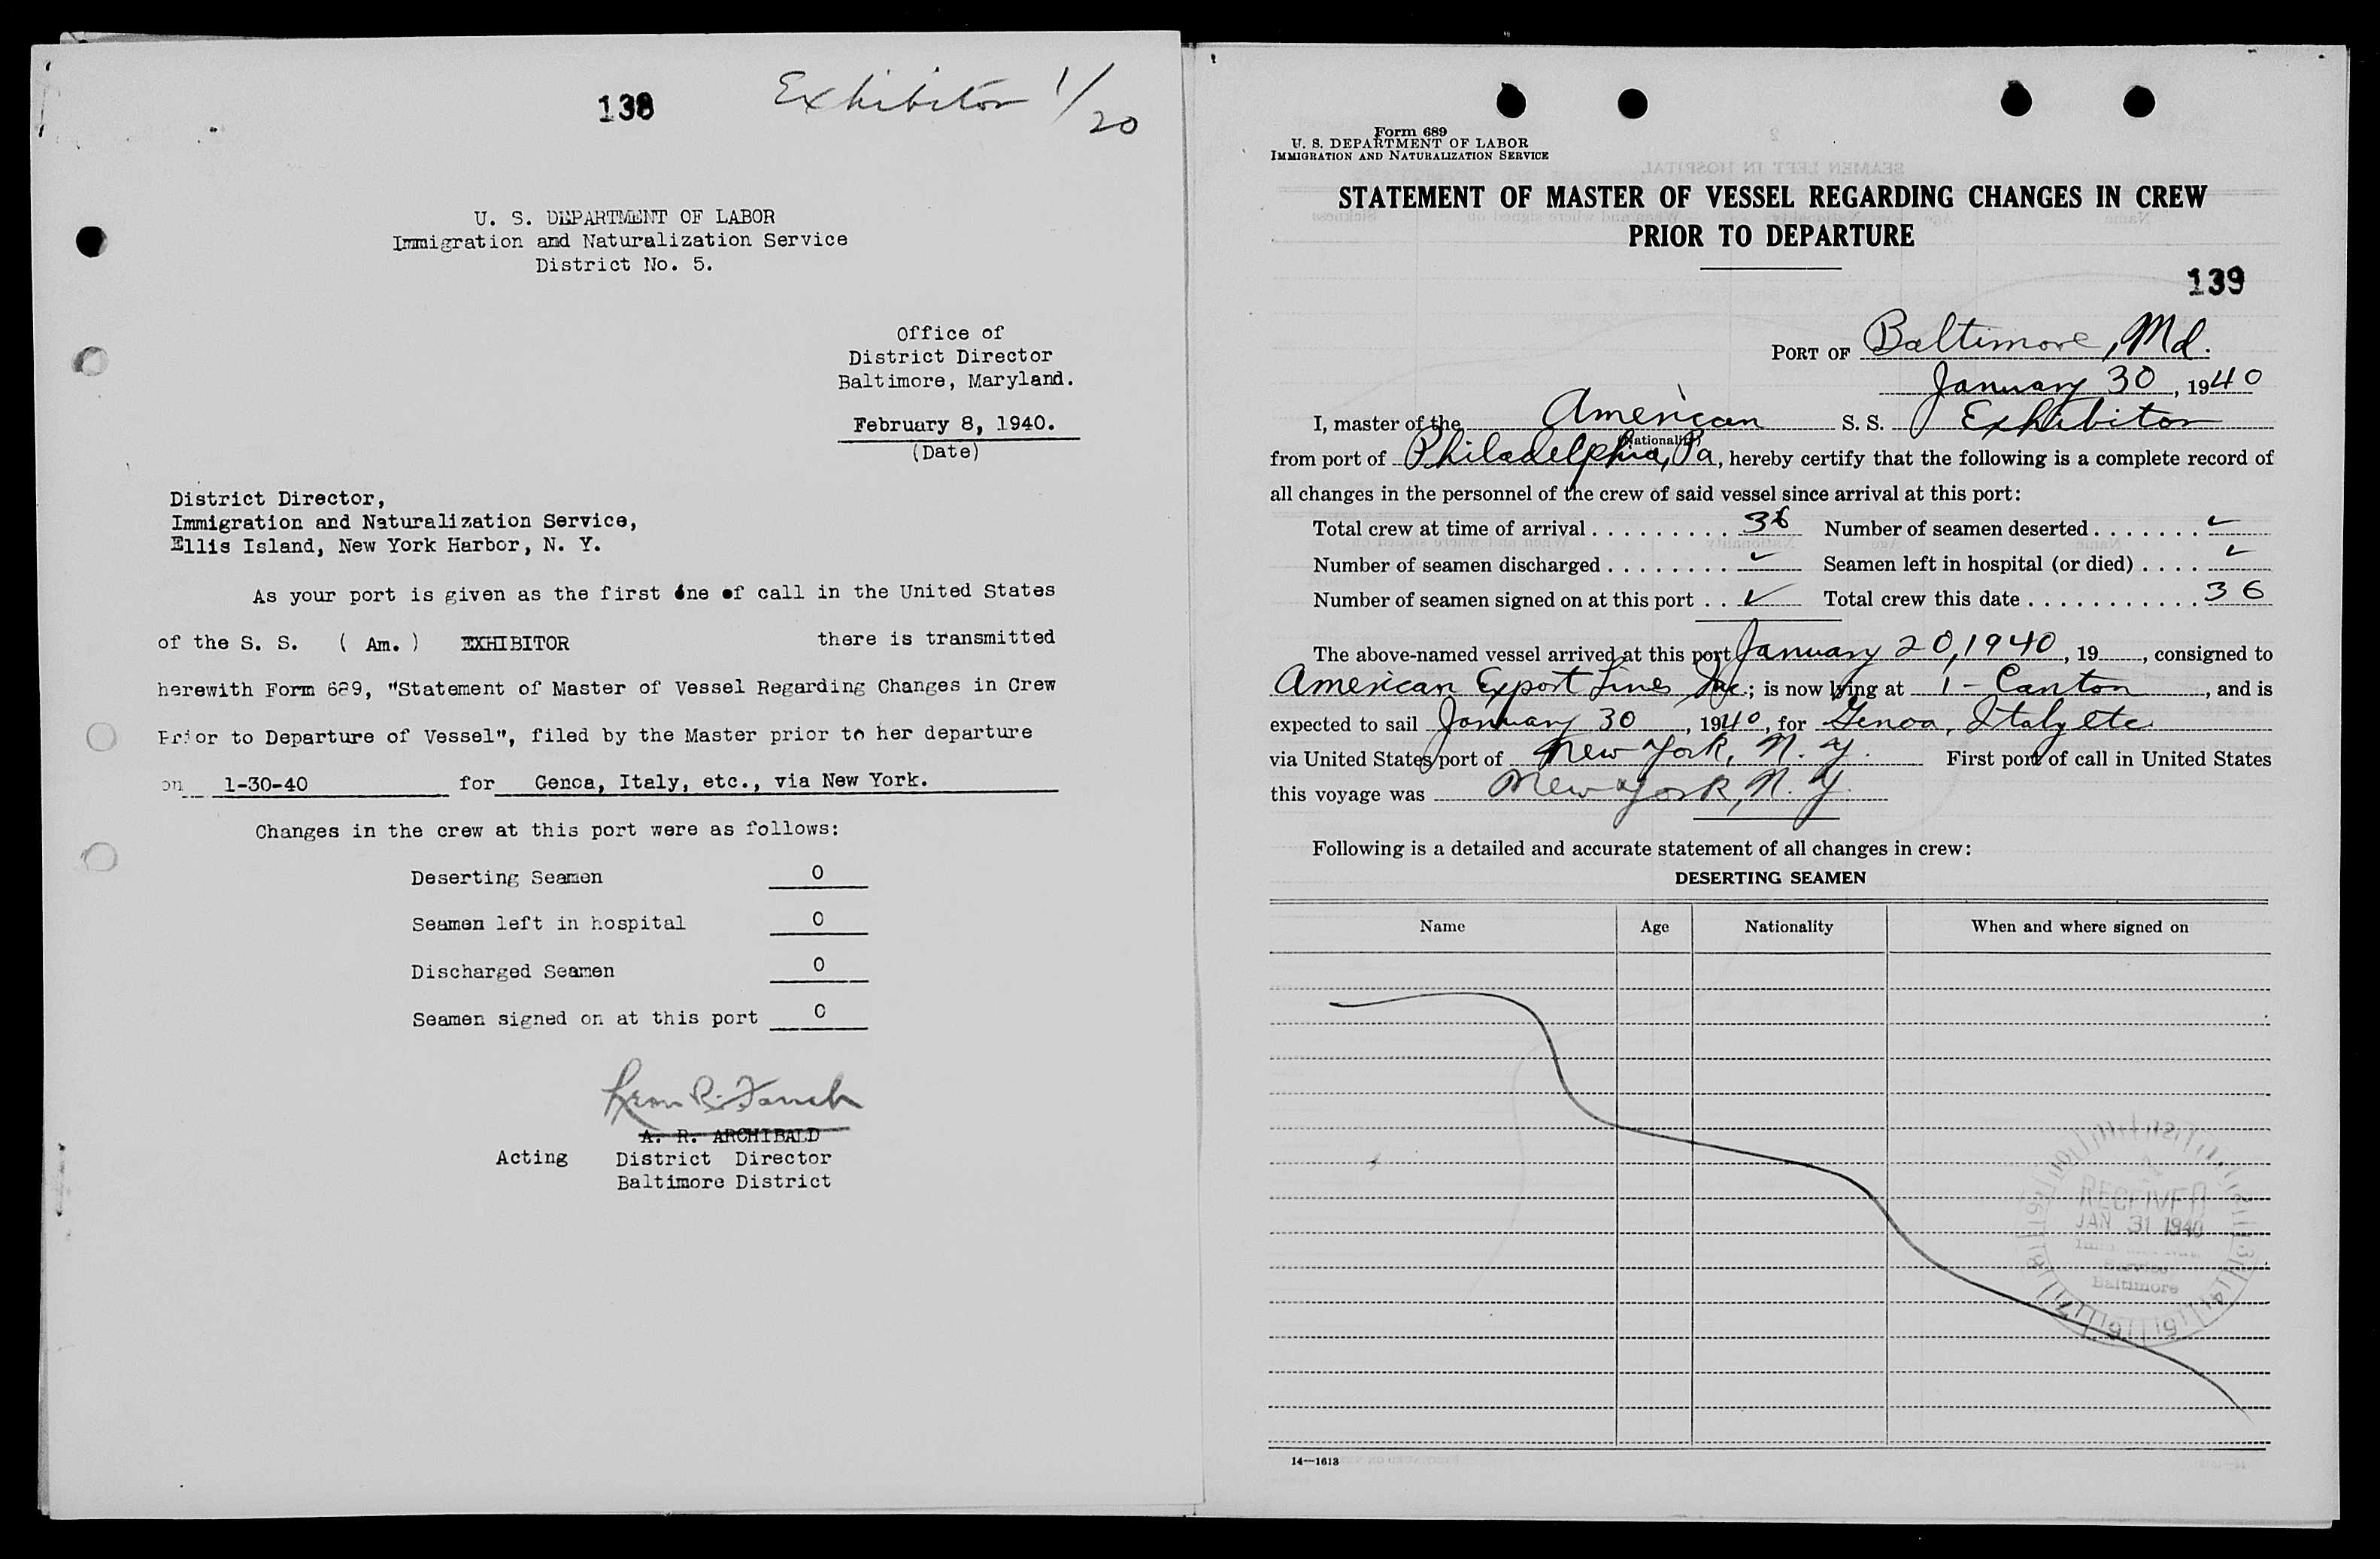 138
Exhibitor 1/20
U. S. DEPARTMENT OF LABOR
Immigration and Naturalization Service
District No. 5.
Office of
District Director
Baltimore, Maryland.
February 8, 1940.
(Date)
District Director,
Immigration and Naturalization Service,
Ellis Island, New York Harbor, N. Y.
As your port is given as the first one of call in the United States
of the S. S. ( Am. ) EXHIBITOR there is transmitted
herewith Form 689, "Statement of Master of Vessel Regarding Changes in Crew
Prior to Departure of Vessel", filed by the Master prior to her departure
on 1-30-40 for Genoa, Italy, etc., via New York.
Changes in the crew at this port were as follows:
Deserting Seamen 0
Seamen left in hospital 0
Discharged Seamen 0
Seamen signed on at this port 0
A. R. ARCHIBALD
Acting District Director
Baltimore District
Form 689
U. S. DEPARTMENT OF LABOR
IMMIGRATION AND NATURALIZATION SERVICE
STATEMENT OF MASTER OF VESSEL REGARDING CHANGES IN CREW
PRIOR TO DEPARTURE
139
PORT OF Baltimore, Md.
January 30, 1940
I, master of the American S. S. Exhibitor
(Nationality)
from port of Philadelphia, Pa, hereby certify that the following is a complete record of
all changes in the personnel of the crew of said vessel since arrival at this port:
Total crew at time of arrival . . . . . . . . . 36 Number of seamen deserted . . . . . . . ✓
Number of seamen discharged . . . . . . . . ✓ Seamen left in hospital (or died) . . . . ✓
Number of seamen signed on at this port . . ✓ Total crew this date . . . . . . . . . . . 36
The above-named vessel arrived at this port January 20, 1940, 19 , consigned to
American Export Lines Inc.; is now lying at 1 - Canton, and is
expected to sail January 30, 1940, for Genoa, Italy etc.
via United States port of New York, N. Y. First port of call in United States
this voyage was New York, N. Y.
Following is a detailed and accurate statement of all changes in crew:
DESERTING SEAMEN
Name Age Nationality When and where signed on
RECEIVED
JAN 31 1940
Service
Baltimore
14—1613